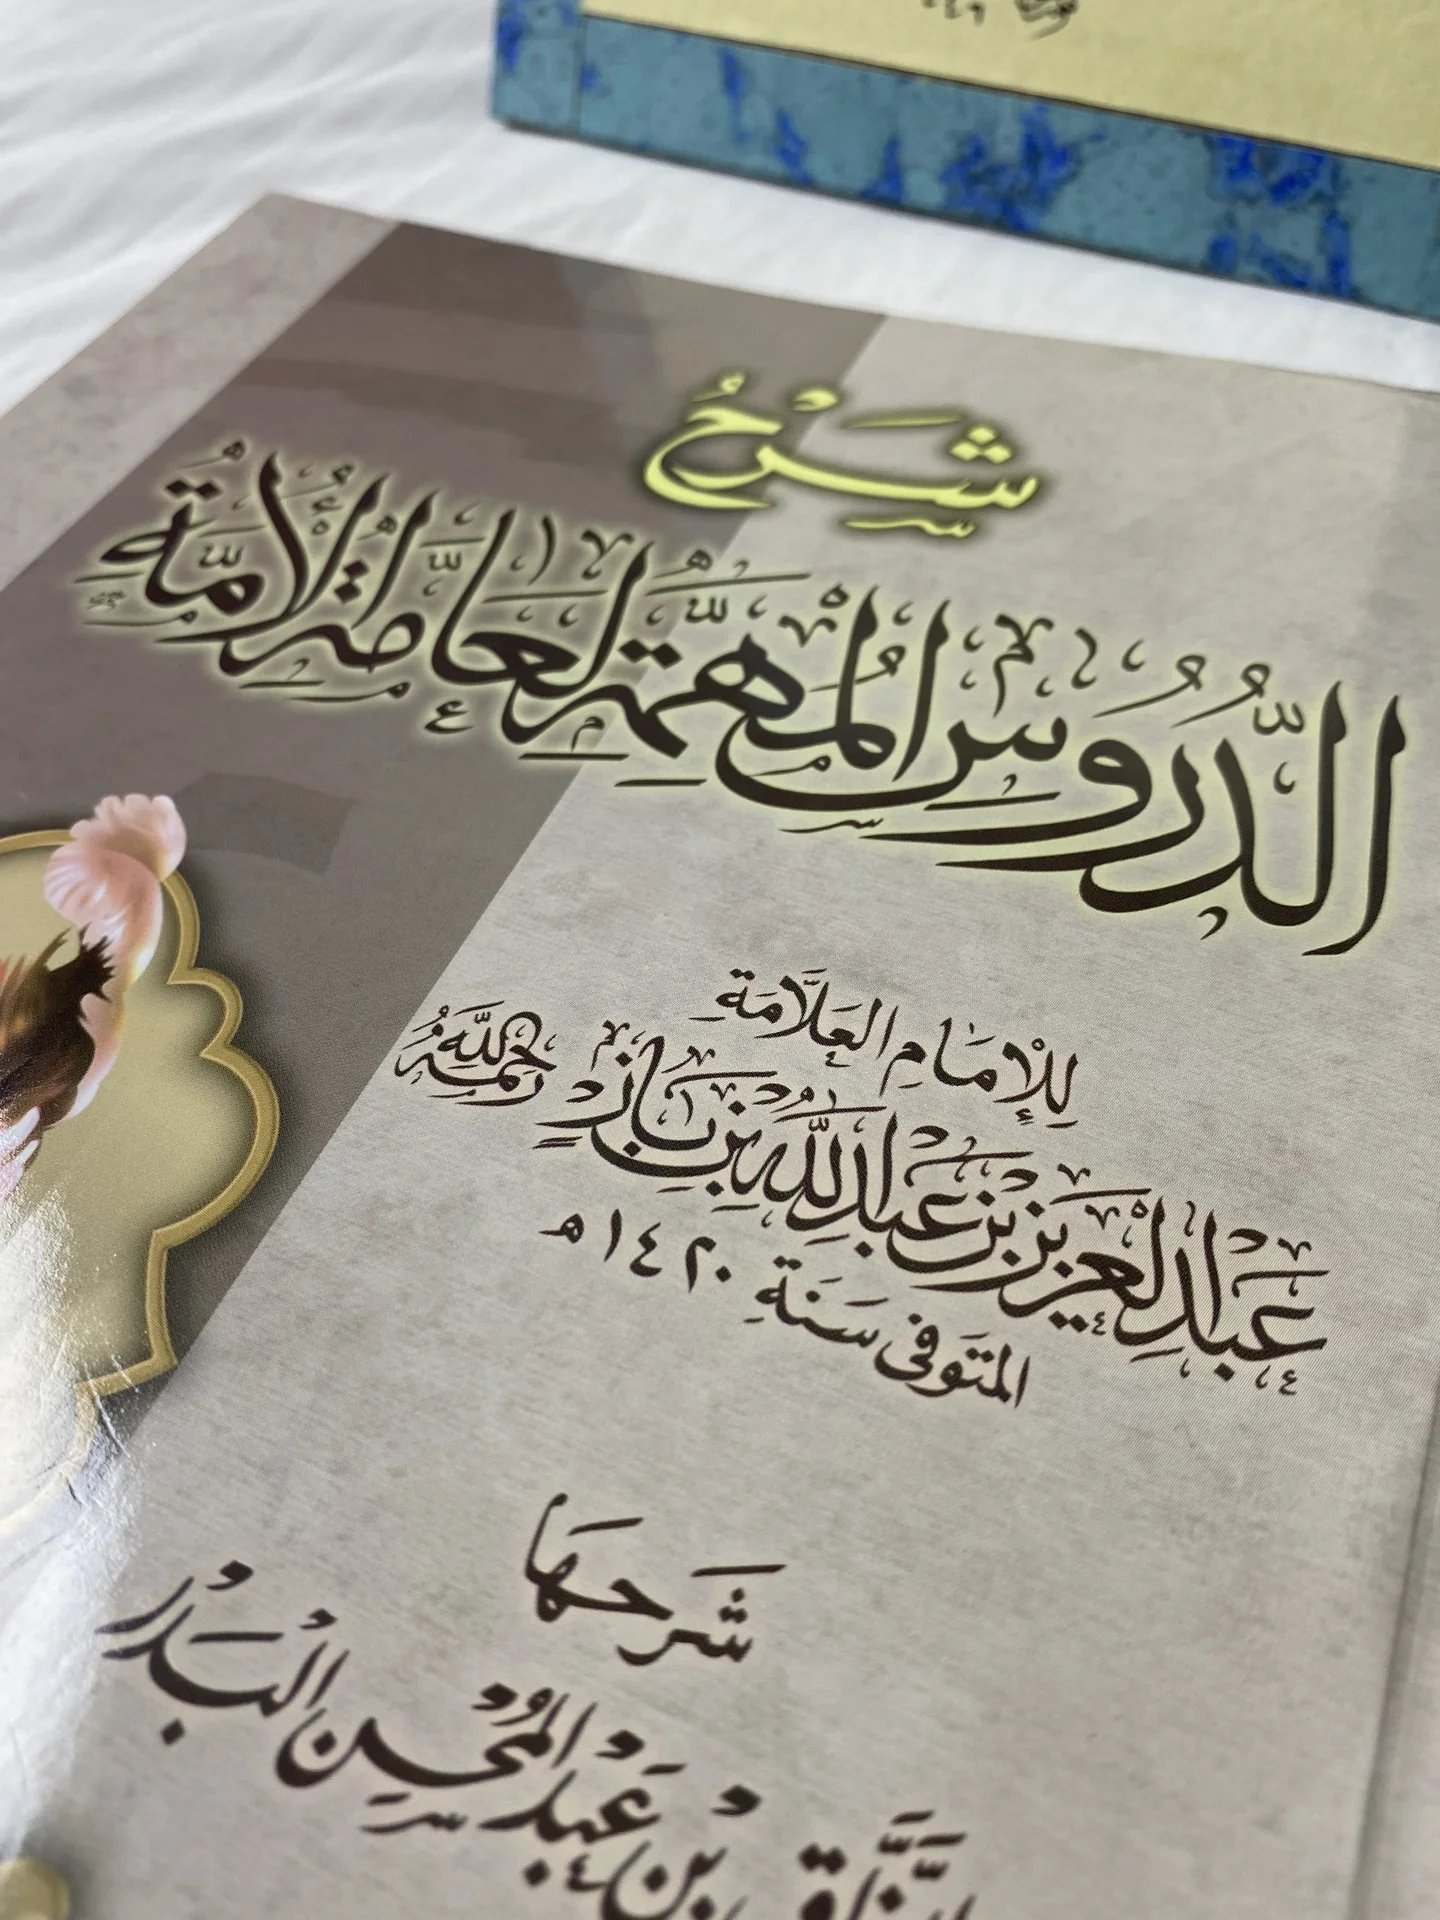 شَرْحُ
الدُّرُوسِ المُهِمَّةِ لِعَامَّةِ الأُمَّةِ
لِلإِمَامِ العَلَّامَةِ
عَبْدِ العَزِيزِ بْنِ عَبْدِ اللَّهِ بْنِ بَازٍ رَحِمَهُ اللَّهُ
المتَوفى سَنَةِ ١٤٢٠ هـ
شَرحهَا
بْنُ عَبْدِ المُحْسِنِ البَدْرُ